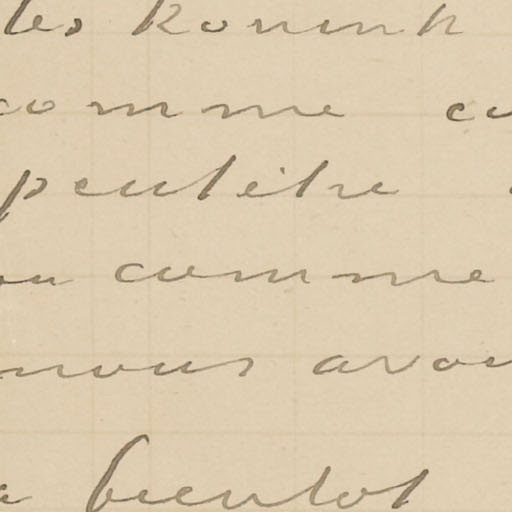 les Konink
comme
peutêtre
ou comme
nous avou
a bientot